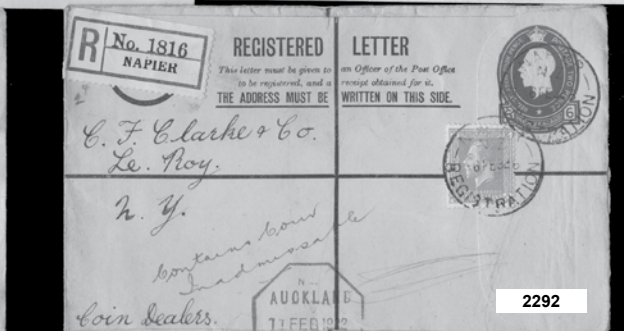 R No. 1816
NAPIER
REGISTERED LETTER
This letter must be given to an Officer of the Post Office
to be registered, and a receipt obtained for it.
THE ADDRESS MUST BE WRITTEN ON THIS SIDE.
C. F. Clarke & Co.
Le. Roy.
N. Y.
REGISTRATION
Contains Coin
Inadmissable
Coin Dealers.
AUCKLAND
11 FEB
2292